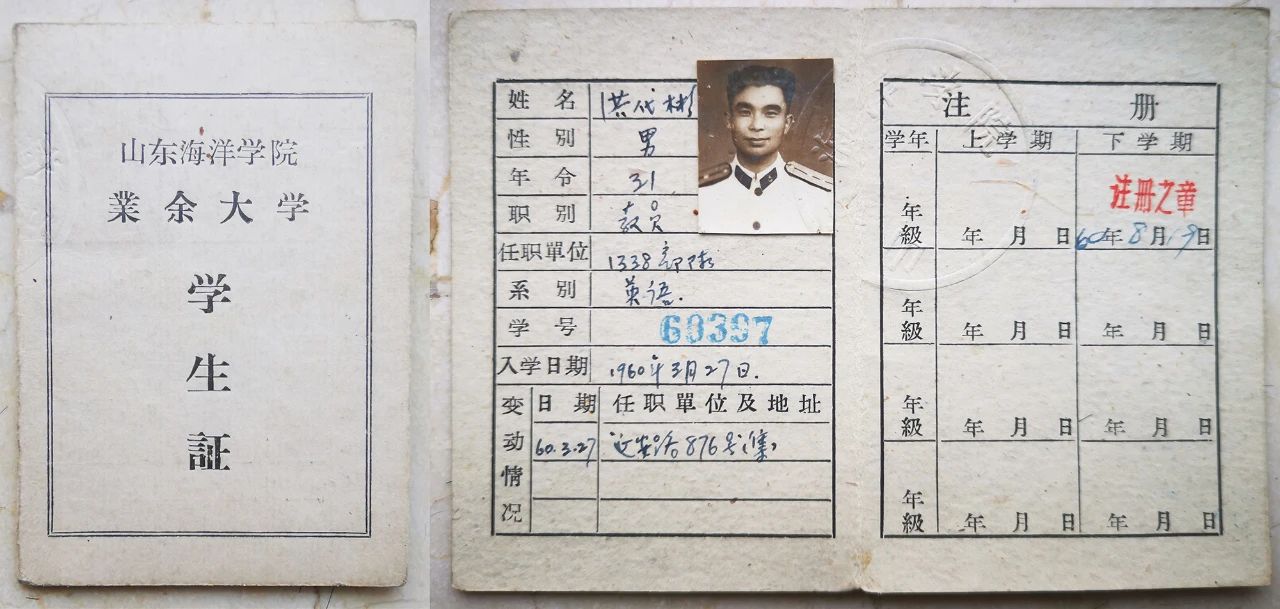 山东海洋学院
業余大学
学
生
証
姓 名 洪代彬
性 别 男
年 令 31
职 别 教员
任职單位 1338部队
系 别 英语.
学 号 60397
入学日期 1960年3月27日.
变动情况 日期 任职單位及地址
60.3.27 延安路876号(集)
注 册
学年 上学期 下学期
注册之章
年級 年 月 日 60年8月19日
年級 年 月 日 年 月 日
年級 年 月 日 年 月 日
年級 年 月 日 年 月 日